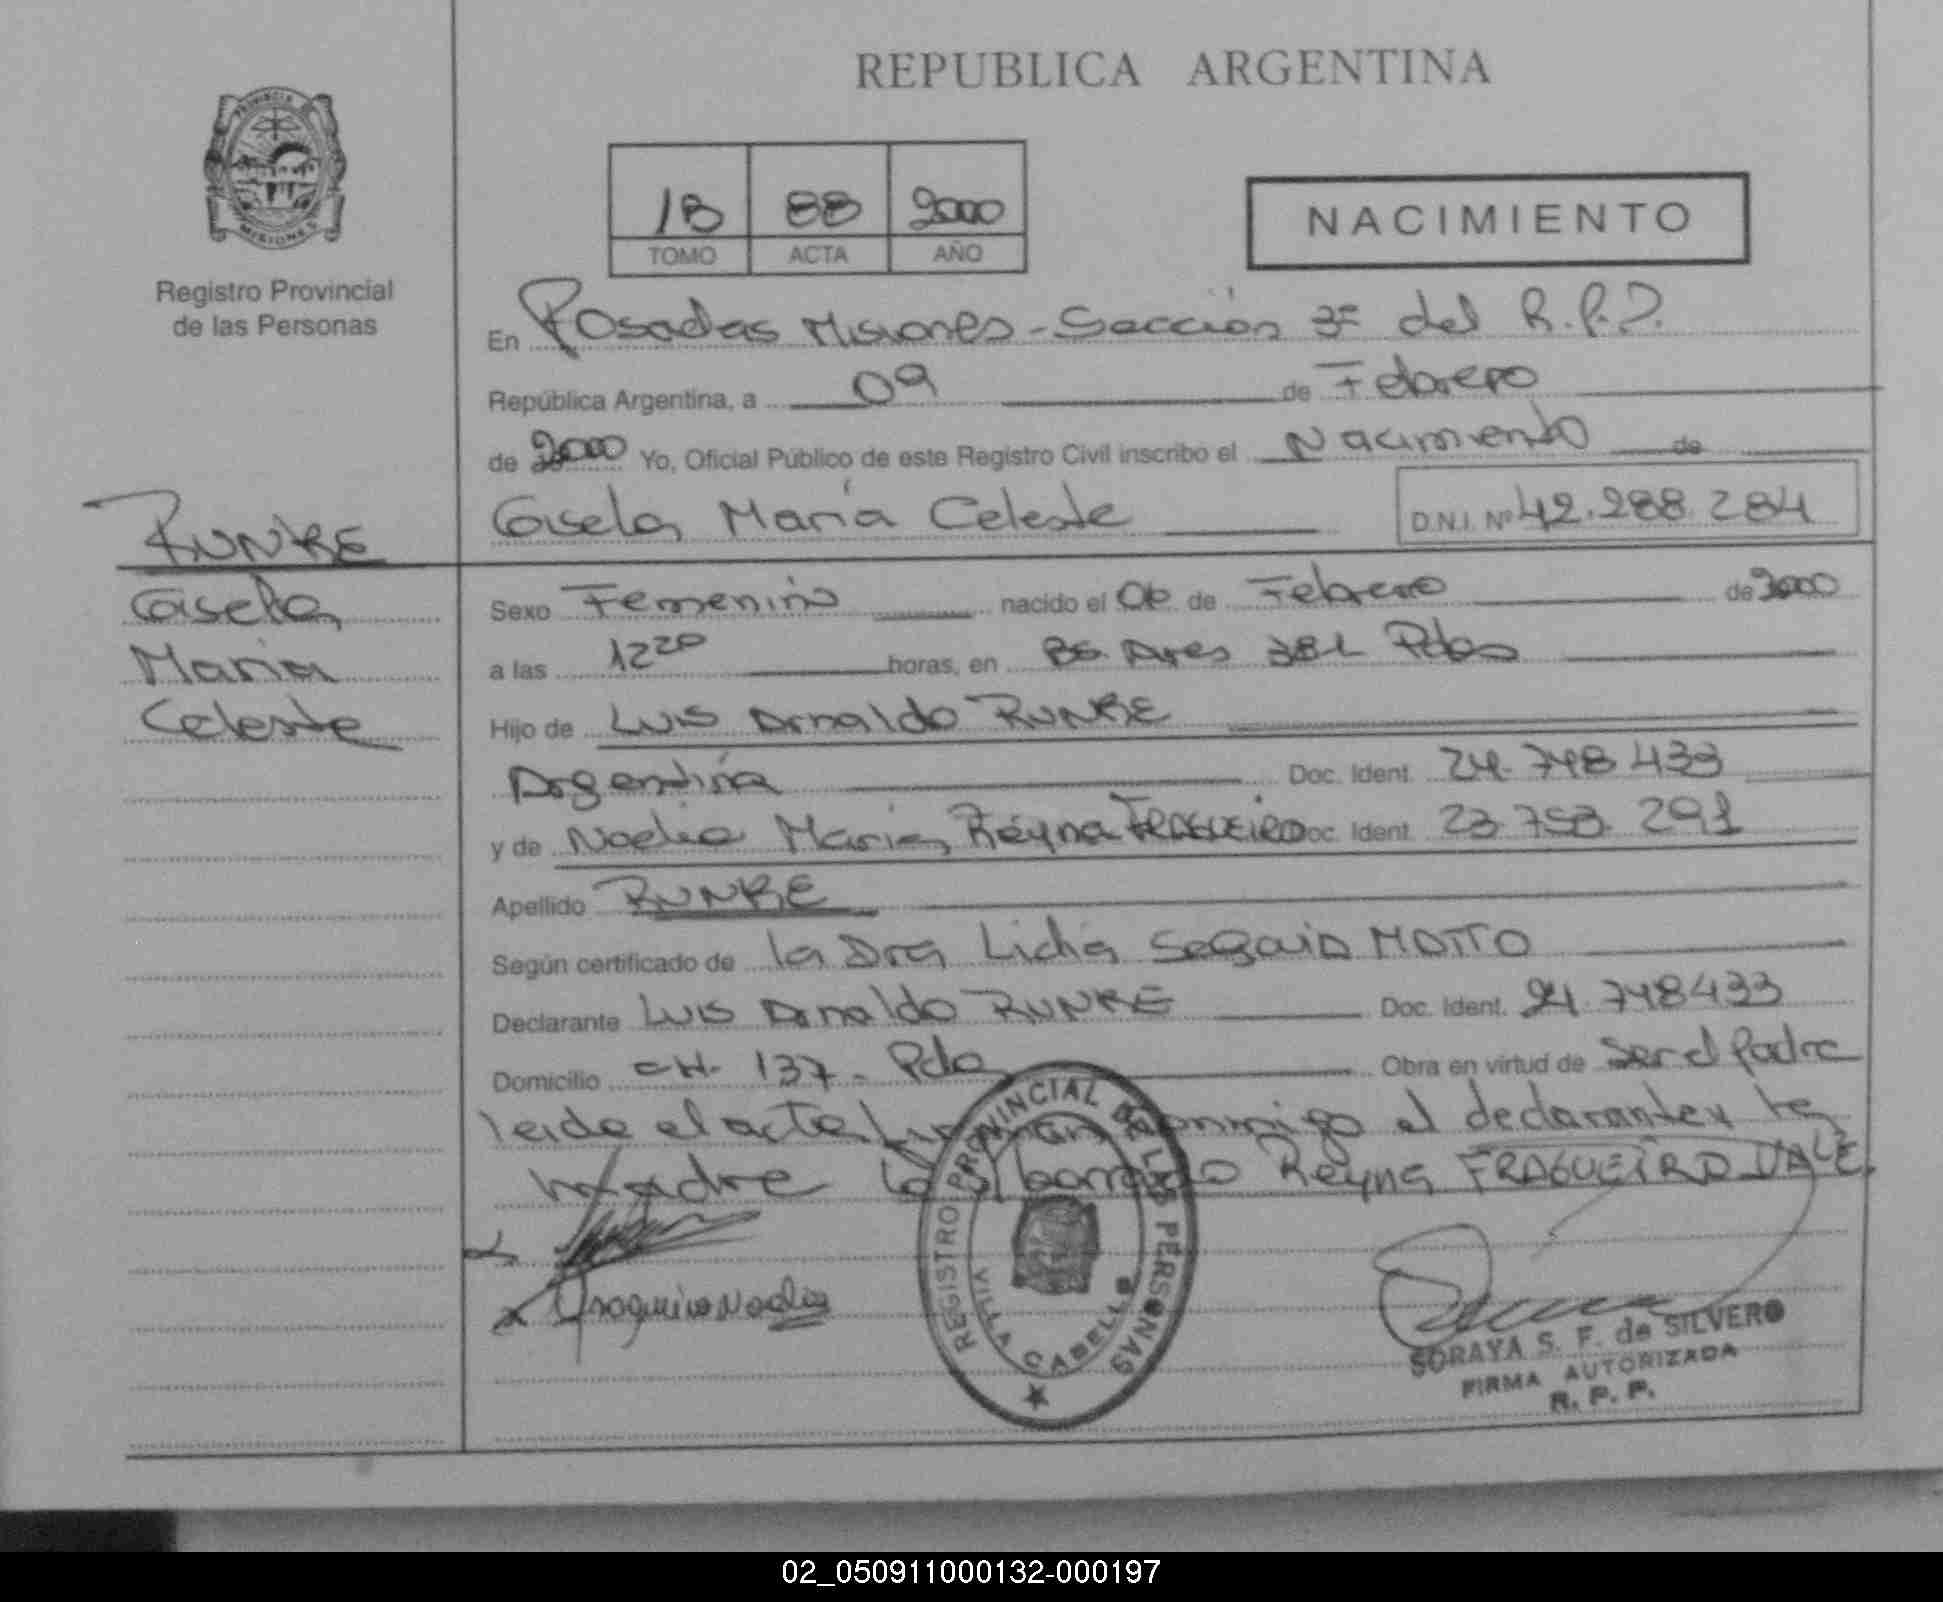 REPUBLICA ARGENTINA
PROVINCIA
MISIONES
Registro Provincial
de las Personas
1B 88 2000
TOMO ACTA AÑO
NACIMIENTO
En Posadas Misiones - Sección 3ª del R.P.P.
República Argentina, a 09 de Febrero
de 2000 Yo, Oficial Público de este Registro Civil inscribo el Nacimiento de
Gisela María Celeste D.N.I. Nº 42.288.284
RUNKE
Gisela
Maria
Celeste
Sexo Femenino nacido el 06 de Febrero de 2000
a las 12 20 horas, en Bs. Aires Pdas
Hijo de Luis Arnaldo RUNKE
Argentina Doc. Ident. 24.748.433
y de Nadia María Reyna FRAGUEIRO Doc. Ident. 23.753.291
Apellido RUNKE
Según certificado de la Dra Lidia MOTTO
Declarante Luis Arnaldo RUNKE Doc. Ident. 24.748433
Domicilio CH. 137 - Pdas Obra en virtud de Ser el Padre
leida el acta firman conmigo el declarante y la
Madre lo borrado Reyna FRAGUEIRO VALE.
Fragueiro Nadia
REGISTRO PROVINCIAL DE LAS PERSONAS
VILLA CABELLO
SORAYA S. F. de SILVERO
FIRMA AUTORIZADA
R. P. P.
02_050911000132-000197